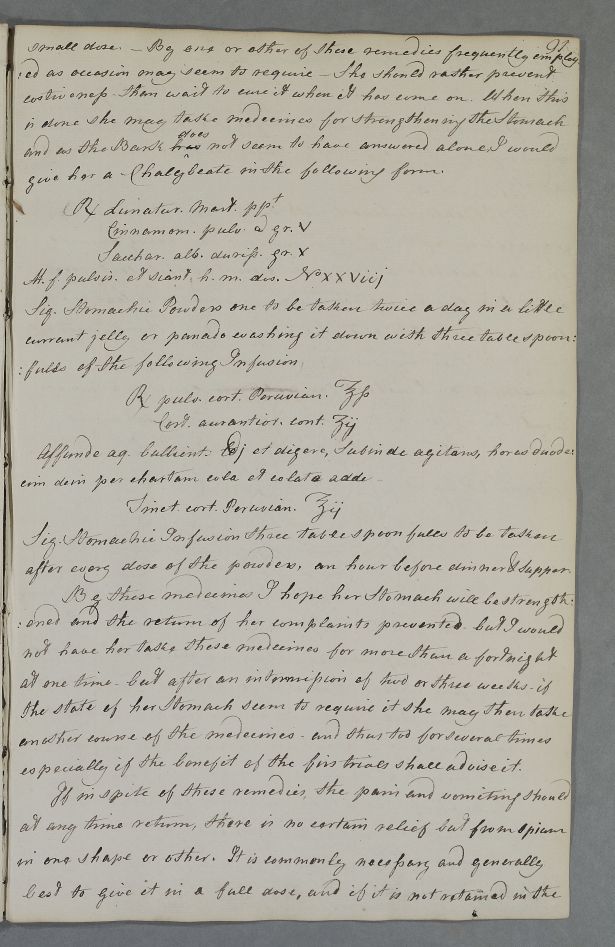 91
small dose. – By one or other of these remedies frequently employ
:ed as occasion may seem to require – She should rather prevent
costiveness than wait to cure it when it has come on. When this
is done she may take medecines for strengthening the Stomach
and as the Bark has does not seem to have answered alone, I would
give her a Chalybeate in the following form.
℞ Limatur. Mart. ppt
Cinnamom. pulv. a gr. V
Sacchar. alb. duriss. gr. X
M. f. pulvis. et fiant h. m. dos. No XXViij
Sig. Stomachic Powders one to be taken twice a day in a little
currant jelly or panado washing it down with three table spoon:
:fulls of the following Infusion
℞ pulv. cort. Peruvian. ℥ß
Cort. aurantior. cont. ʒij
Affunde aq. bullient. ℔j et digere, subinde agitans, horas duode:
cim dein per chartam cola et colatæ adde
Tinct. cort. Peruvian. ℥ij
Sig. Stomachic Infusion three table spoonfulls to be taken
after every dose of the powders, an hour before dinner & supper.
By these medecines I hope her Stomach will be strength:
:ened and the return of her complaints prevented. but I would
not have her take these medecines for more than a fortnight
at one time. but after an intermission of two or three weeks. if
the state of her Stomach seem to require it she may then take
another course of the medecines. and thus too for several times
especially if the benefit of the first trials shall advise it.
If in spite of these remedies, the pain and vomiting should
at any time return, there is no certain relief but from opium
in one shape or other. It is commonly necessary and generally
best to give it in a full dose, and if it is not retained in the